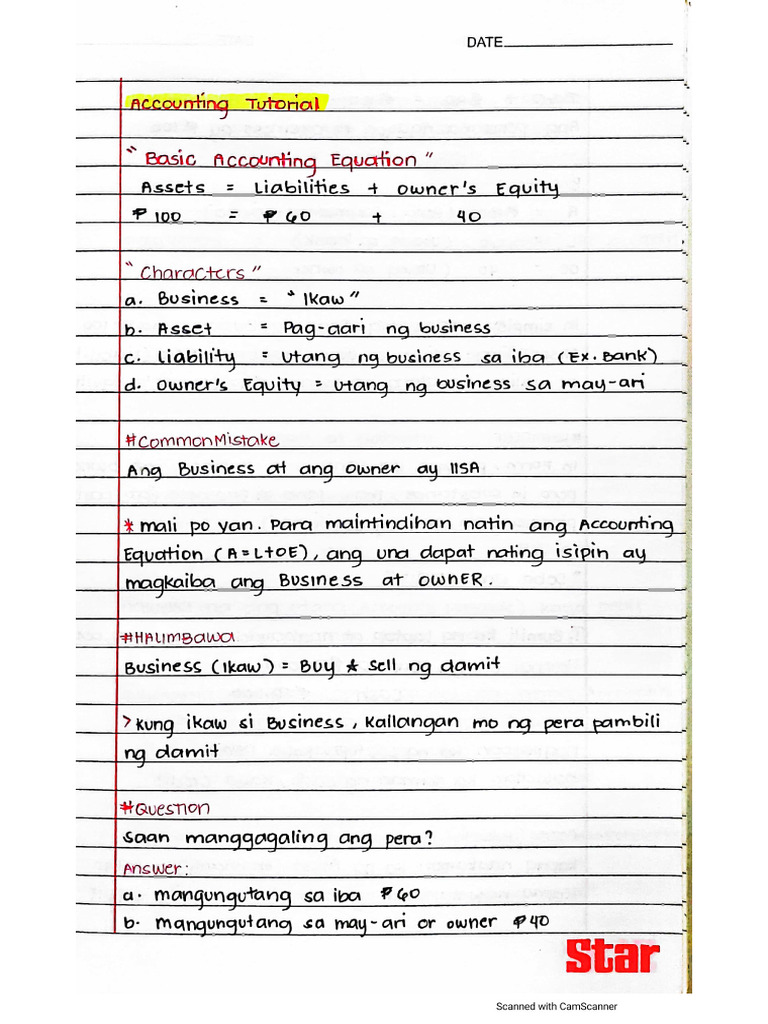 DATE
Accounting Tutorial
"Basic Accounting Equation"
Assets = Liabilities + Owner's Equity
₱100 = ₱60 + 40
"Characters"
a. Business = "Ikaw"
b. Asset = Pag-aari ng business
c. Liability = Utang ng business sa iba (Ex. Bank)
d. Owner's Equity = Utang ng business sa may-ari
#CommonMistake
Ang Business at ang owner ay IISA
* mali po yan. Para maintindihan natin ang Accounting
Equation (A=L+OE), ang una dapat nating isipin ay
magkaiba ang Business at OWNER.
#HALIMBAWA
Business (Ikaw) = Buy & Sell ng damit
> Kung ikaw si Business, Kailangan mo ng pera pambili
ng damit
#Question
Saan manggagaling ang pera?
Answer:
a. mangungutang sa iba ₱60
b. mangungutang sa may-ari or owner ₱40
Star
Scanned with CamScanner